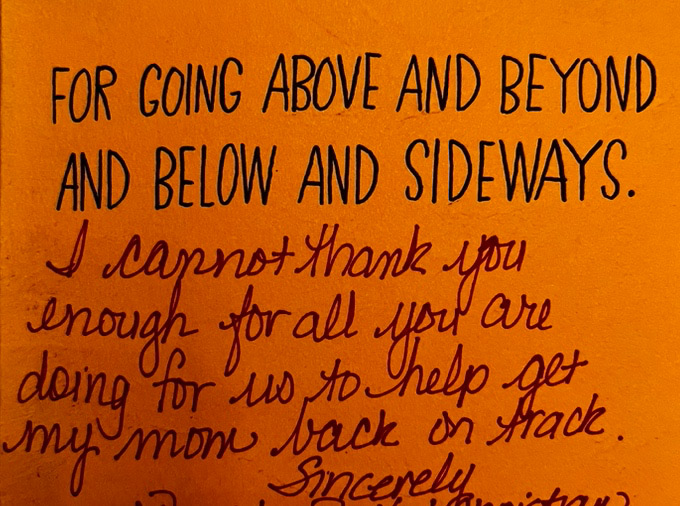 FOR GOING ABOVE AND BEYOND
AND BELOW AND SIDEWAYS.
I cannot thank you
enough for all you are
doing for us to help get
my mom back on track.
Sincerely